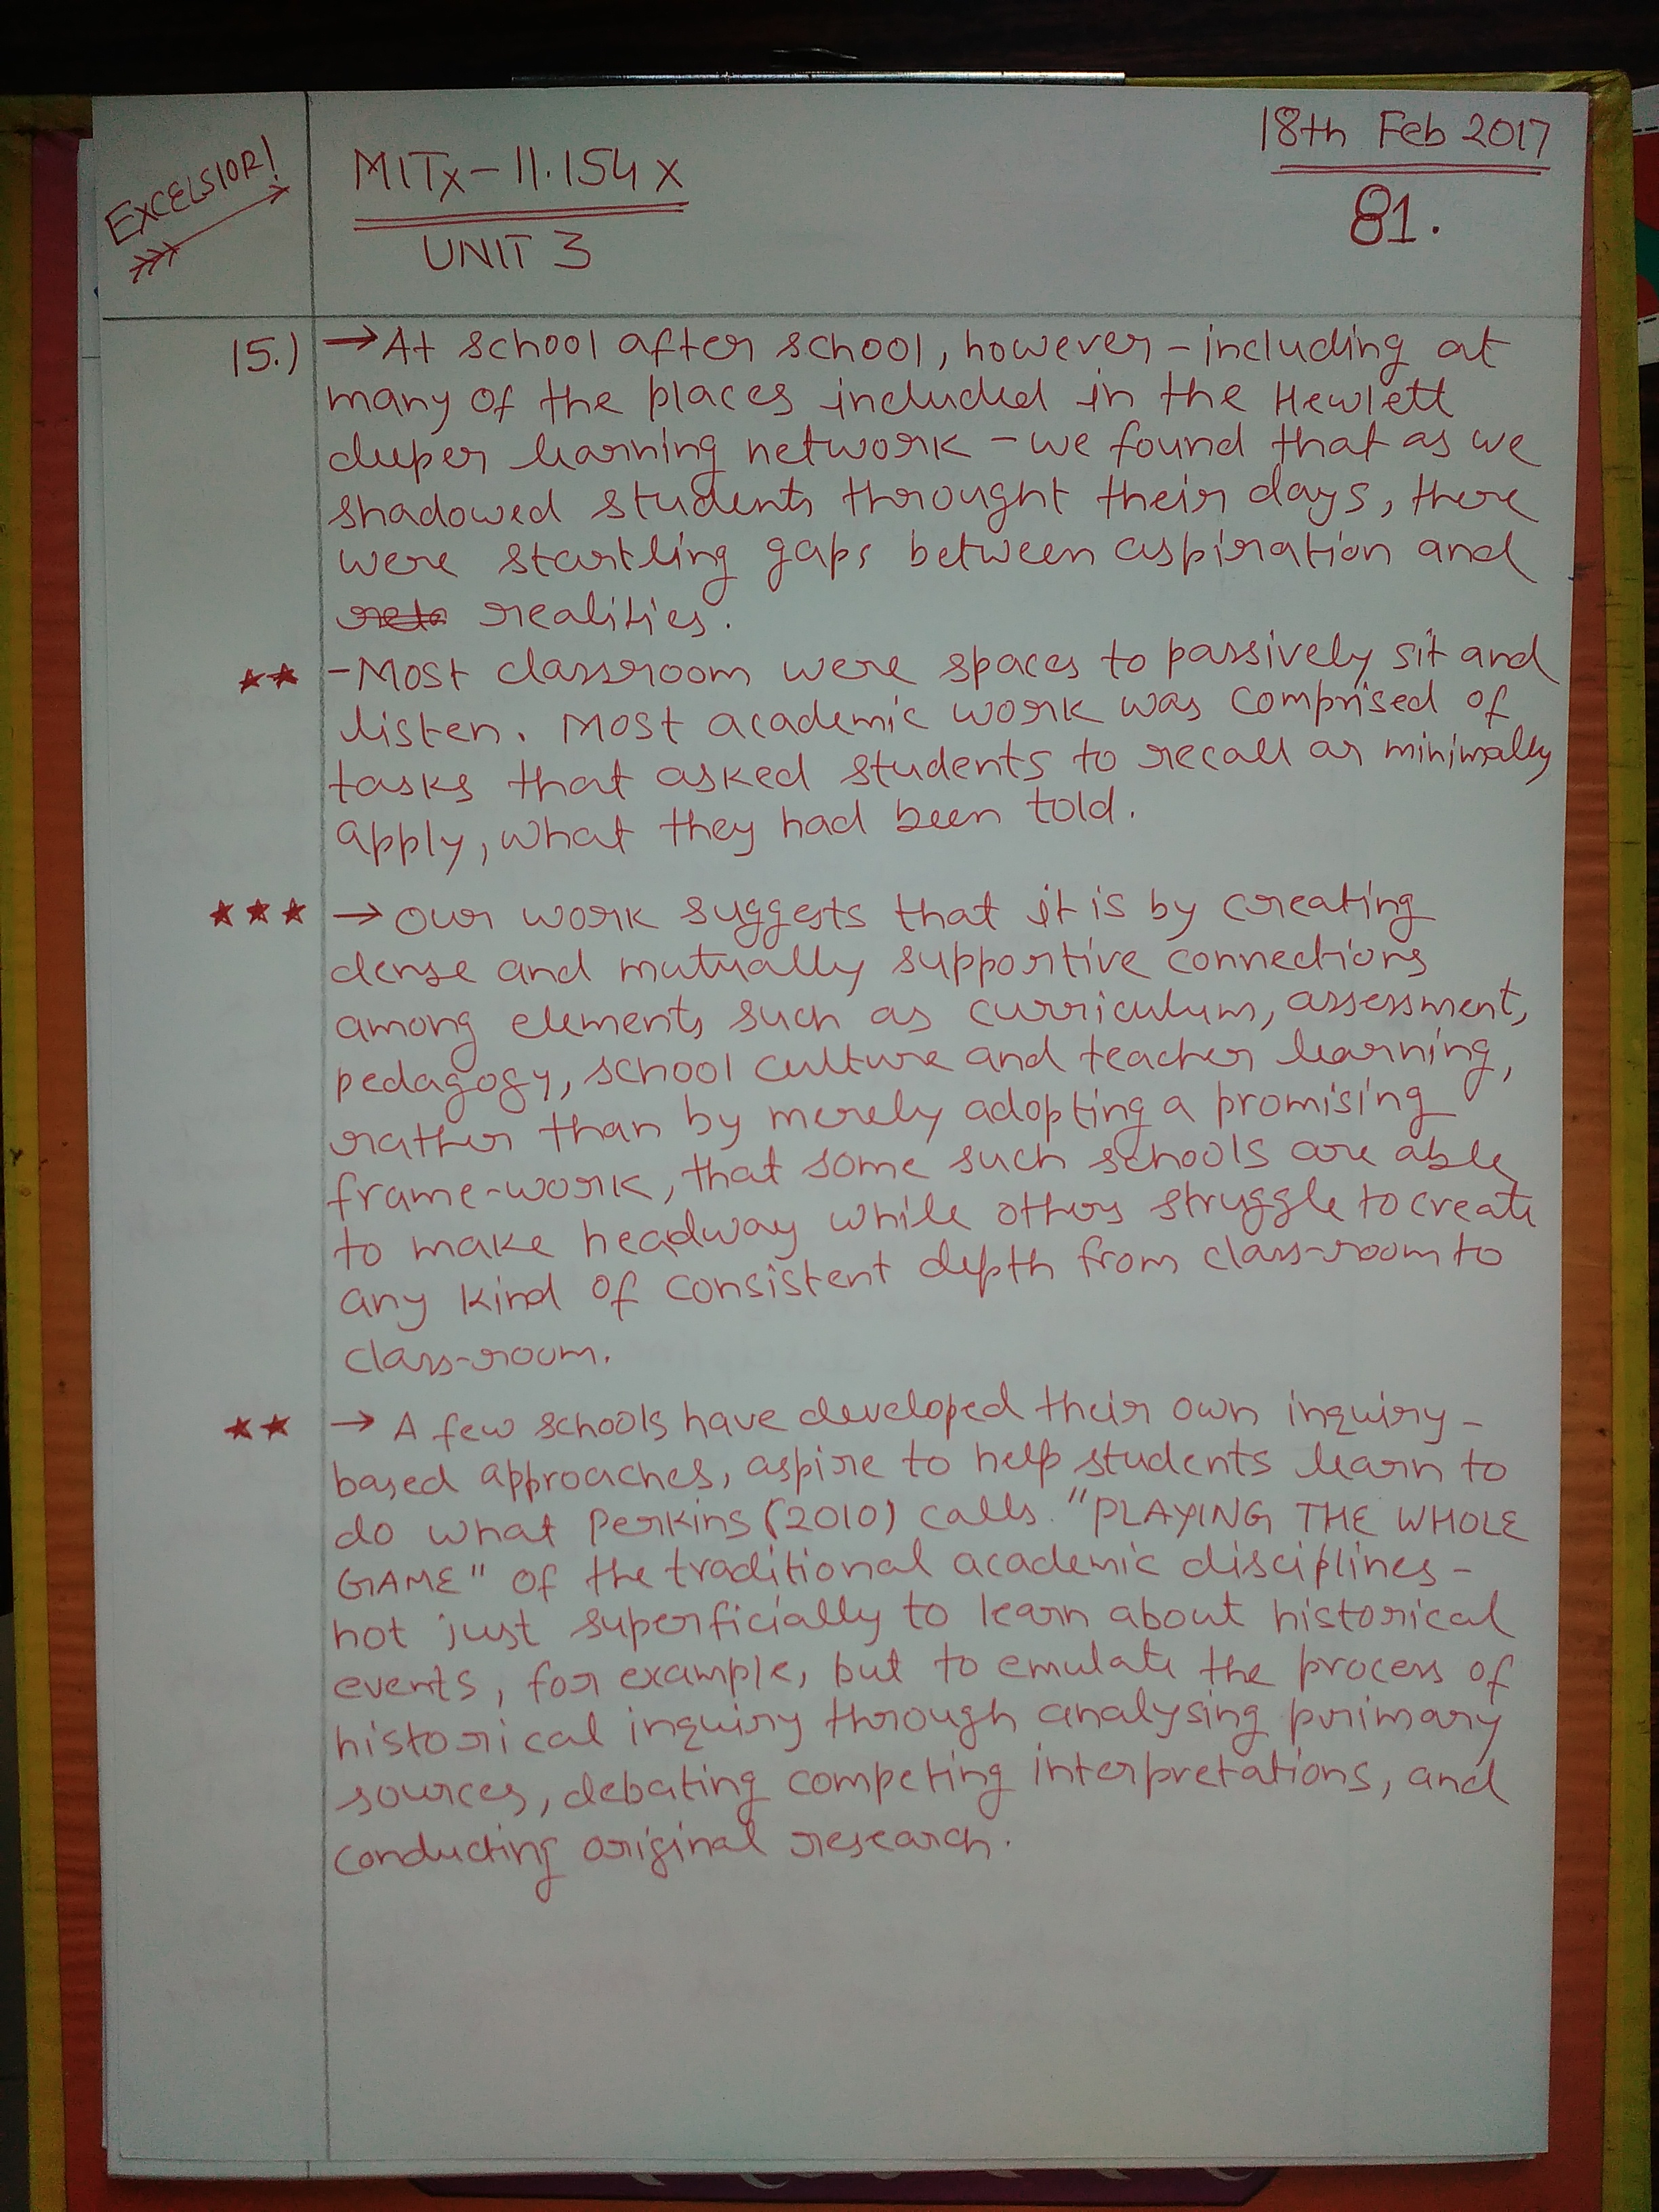 EXCELSIOR!
MITx-11.154x
UNIT 3
18th Feb 2017
81.
15.) → At school after school, however - including at
many of the places included in the Hewlett
deeper learning network - we found that as we
shadowed students throught their days, there
were startling gaps between aspiration and
realities.
★★ - Most classroom were spaces to passively sit and
listen. Most academic work was comprised of
tasks that asked students to recall or minimally
apply, what they had been told.
★★★ → Our work suggests that it is by creating
dense and mutually supportive connections
among elements such as curriculum, assessment,
pedagogy, school culture and teacher learning,
rather than by merely adopting a promising
frame-work, that some such schools are able
to make headway while others struggle to create
any kind of consistent depth from class-room to
class-room.
★★ → A few schools have developed their own inquiry-
based approaches, aspire to help students learn to
do what Perkins (2010) calls "PLAYING THE WHOLE
GAME" of the traditional academic disciplines -
not just superficially to learn about historical
events, for example, but to emulate the process of
historical inquiry through analysing primary
sources, debating competing interpretations, and
conducting original research.